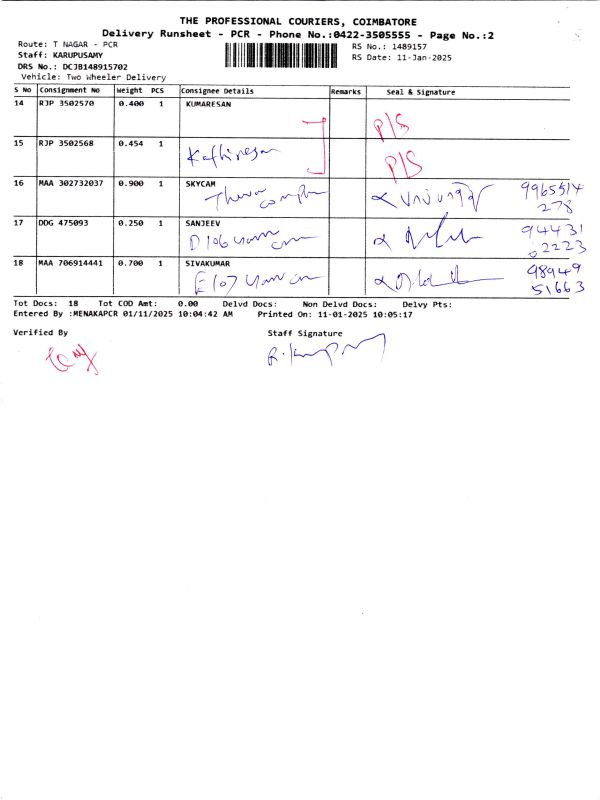 THE PROFESSIONAL COURIERS, COIMBATORE
Delivery Runsheet - PCR - Phone No.:0422-3505555 - Page No.:2
Route: T NAGAR - PCR
RS No.: 1489157
Staff: KARUPUSAMY
RS Date: 11-Jan-2025
DRS No.: DCJB148915702
Vehicle: Two Wheeler Delivery
S No Consignment No Weight PCS Consignee Details Remarks Seal & Signature
14 RJP 3502570 0.400 1 KUMARESAN
P/S
15 RJP 3502568 0.454 1
Kathiresan P/S
16 MAA 302732037 0.900 1 SKYCAM
9965514
278
17 DDG 475093 0.250 1 SANJEEV
D106 94431
02223
18 MAA 706914441 0.700 1 SIVAKUMAR
E107 98949
51663
Tot Docs: 18 Tot COD Amt: 0.00 Delvd Docs: Non Delvd Docs: Delvy Pts:
Entered By :MENAKAPCR 01/11/2025 10:04:42 AM Printed On: 11-01-2025 10:05:17
Verified By Staff Signature